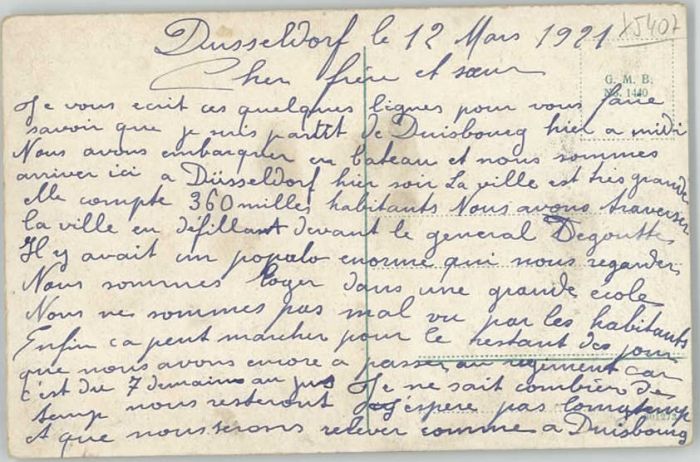 Dusseldorf le 12 Mars 1921
X5407
Cher frère et sœur
G. M. B.
No. 1440
Je vous ecrit ces quelques lignes pour vous faire
savoir que je suis partit de Duisbourg hier a midi
Nous avons embarquer en bateau et nous sommes
arriver ici a Düsseldorf hier soir La ville est très grande
elle compte 360 milles habitants Nous avons traverser
la ville en défillant devant le general Degoutte
Il y avait un populo enorme qui nous regarder
Nous sommes loger dans une grande ecole
Nous ne sommes pas mal vu par les habitants
Enfin ca peut marcher pour le restant des jour
que nous avons encore a passer au regiment car
c'est du 7 demain au jus Je ne sait combien de
temp nous resteront J'éspere pas longtemp
et que nous serons relever comme a Duisbourg